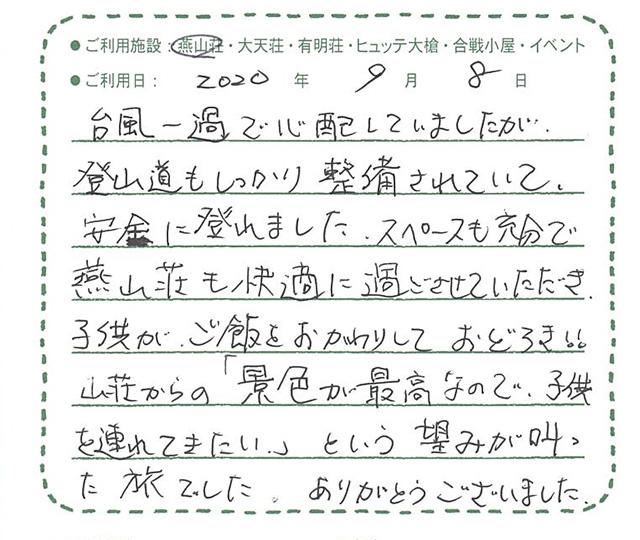 ●ご利用施設：燕山荘・大天荘・有明荘・ヒュッテ大槍・合戦小屋・イベント
●ご利用日： 2020 年 9 月 8 日
台風一過で心配していましたが、
登山道もしっかり整備されていて、
安全に登れました。スペースも充分で
燕山荘も快適に過ごさせていただき、
子供が、ご飯をおかわりして おどろき!!
山荘からの「景色が最高なので、子供
を連れてきたい。」という望みが叫っ
た旅でした。ありがとうございました。